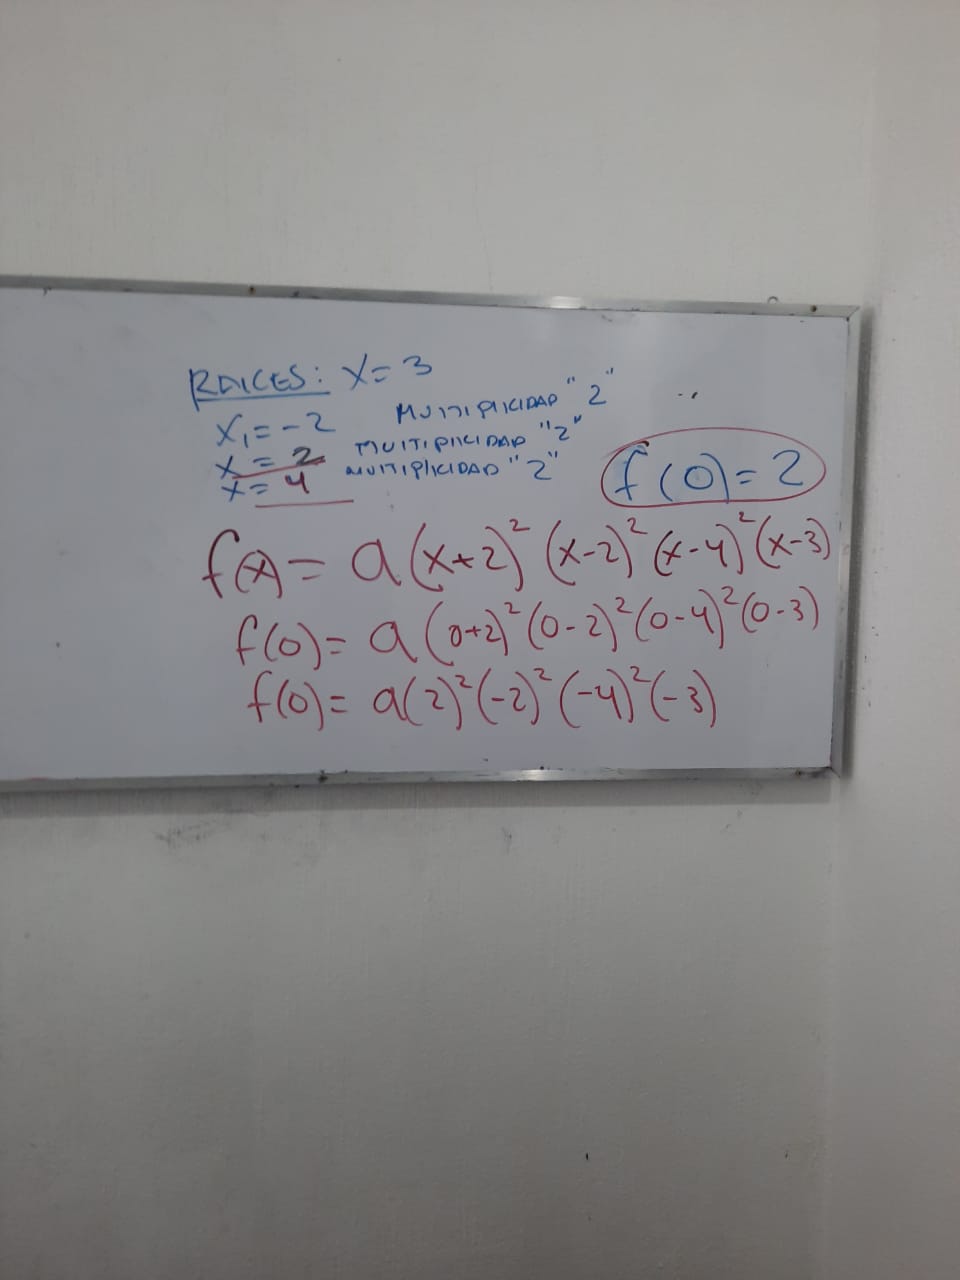 RAICES: X=3
X₁=-2 MULTIPLICIDAD "2"
X=2 MULTIPLICIDAD "2"
X=4 MULTIPLICIDAD "2"
f(0)=2
f(x)= a(x+2)²(x-2)²(x-4)²(x-3)
f(0)= a(0+2)²(0-2)²(0-4)²(0-3)
f(0)= a(2)²(-2)²(-4)²(-3)